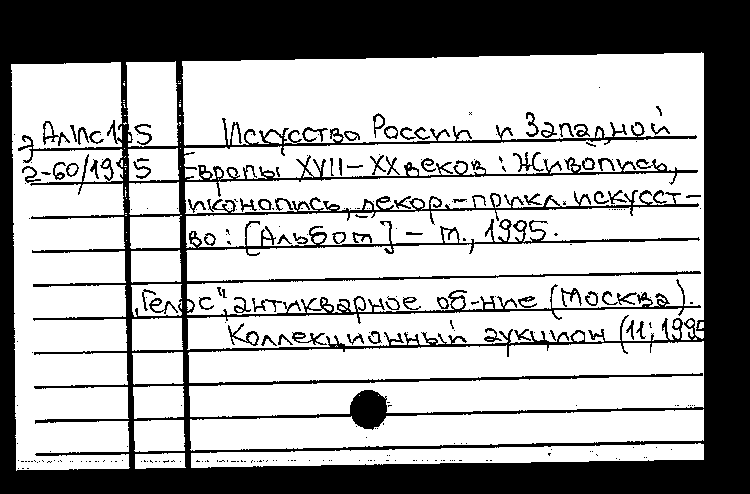 Э АлИс135 Искусство России и Западной
2-60/1995 Европы XVII-XX веков: Живопись,
иконопись, декор.-прикл. искусст-
во: [Альбом] - М., 1995.
"Гелос", антикварное об-ние (Москва).
Коллекционный аукцион (11; 1995